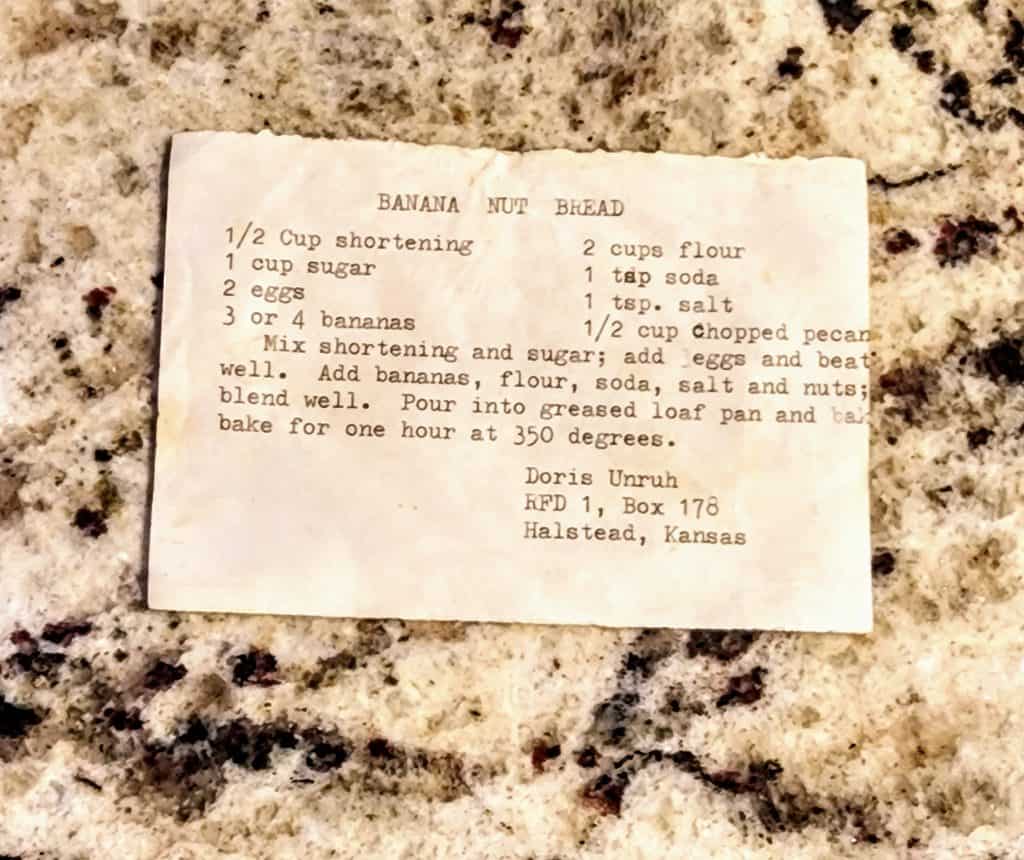 BANANA NUT BREAD
1/2 Cup shortening
1 cup sugar
2 eggs
3 or 4 bananas
2 cups flour
1 tsp soda
1 tsp. salt
1/2 cup Chopped pecan
Mix shortening and sugar; add eggs and beat
well. Add bananas, flour, soda, salt and nuts;
blend well. Pour into greased loaf pan and bak
bake for one hour at 350 degrees.
Doris Unruh
RFD 1, Box 178
Halstead, Kansas